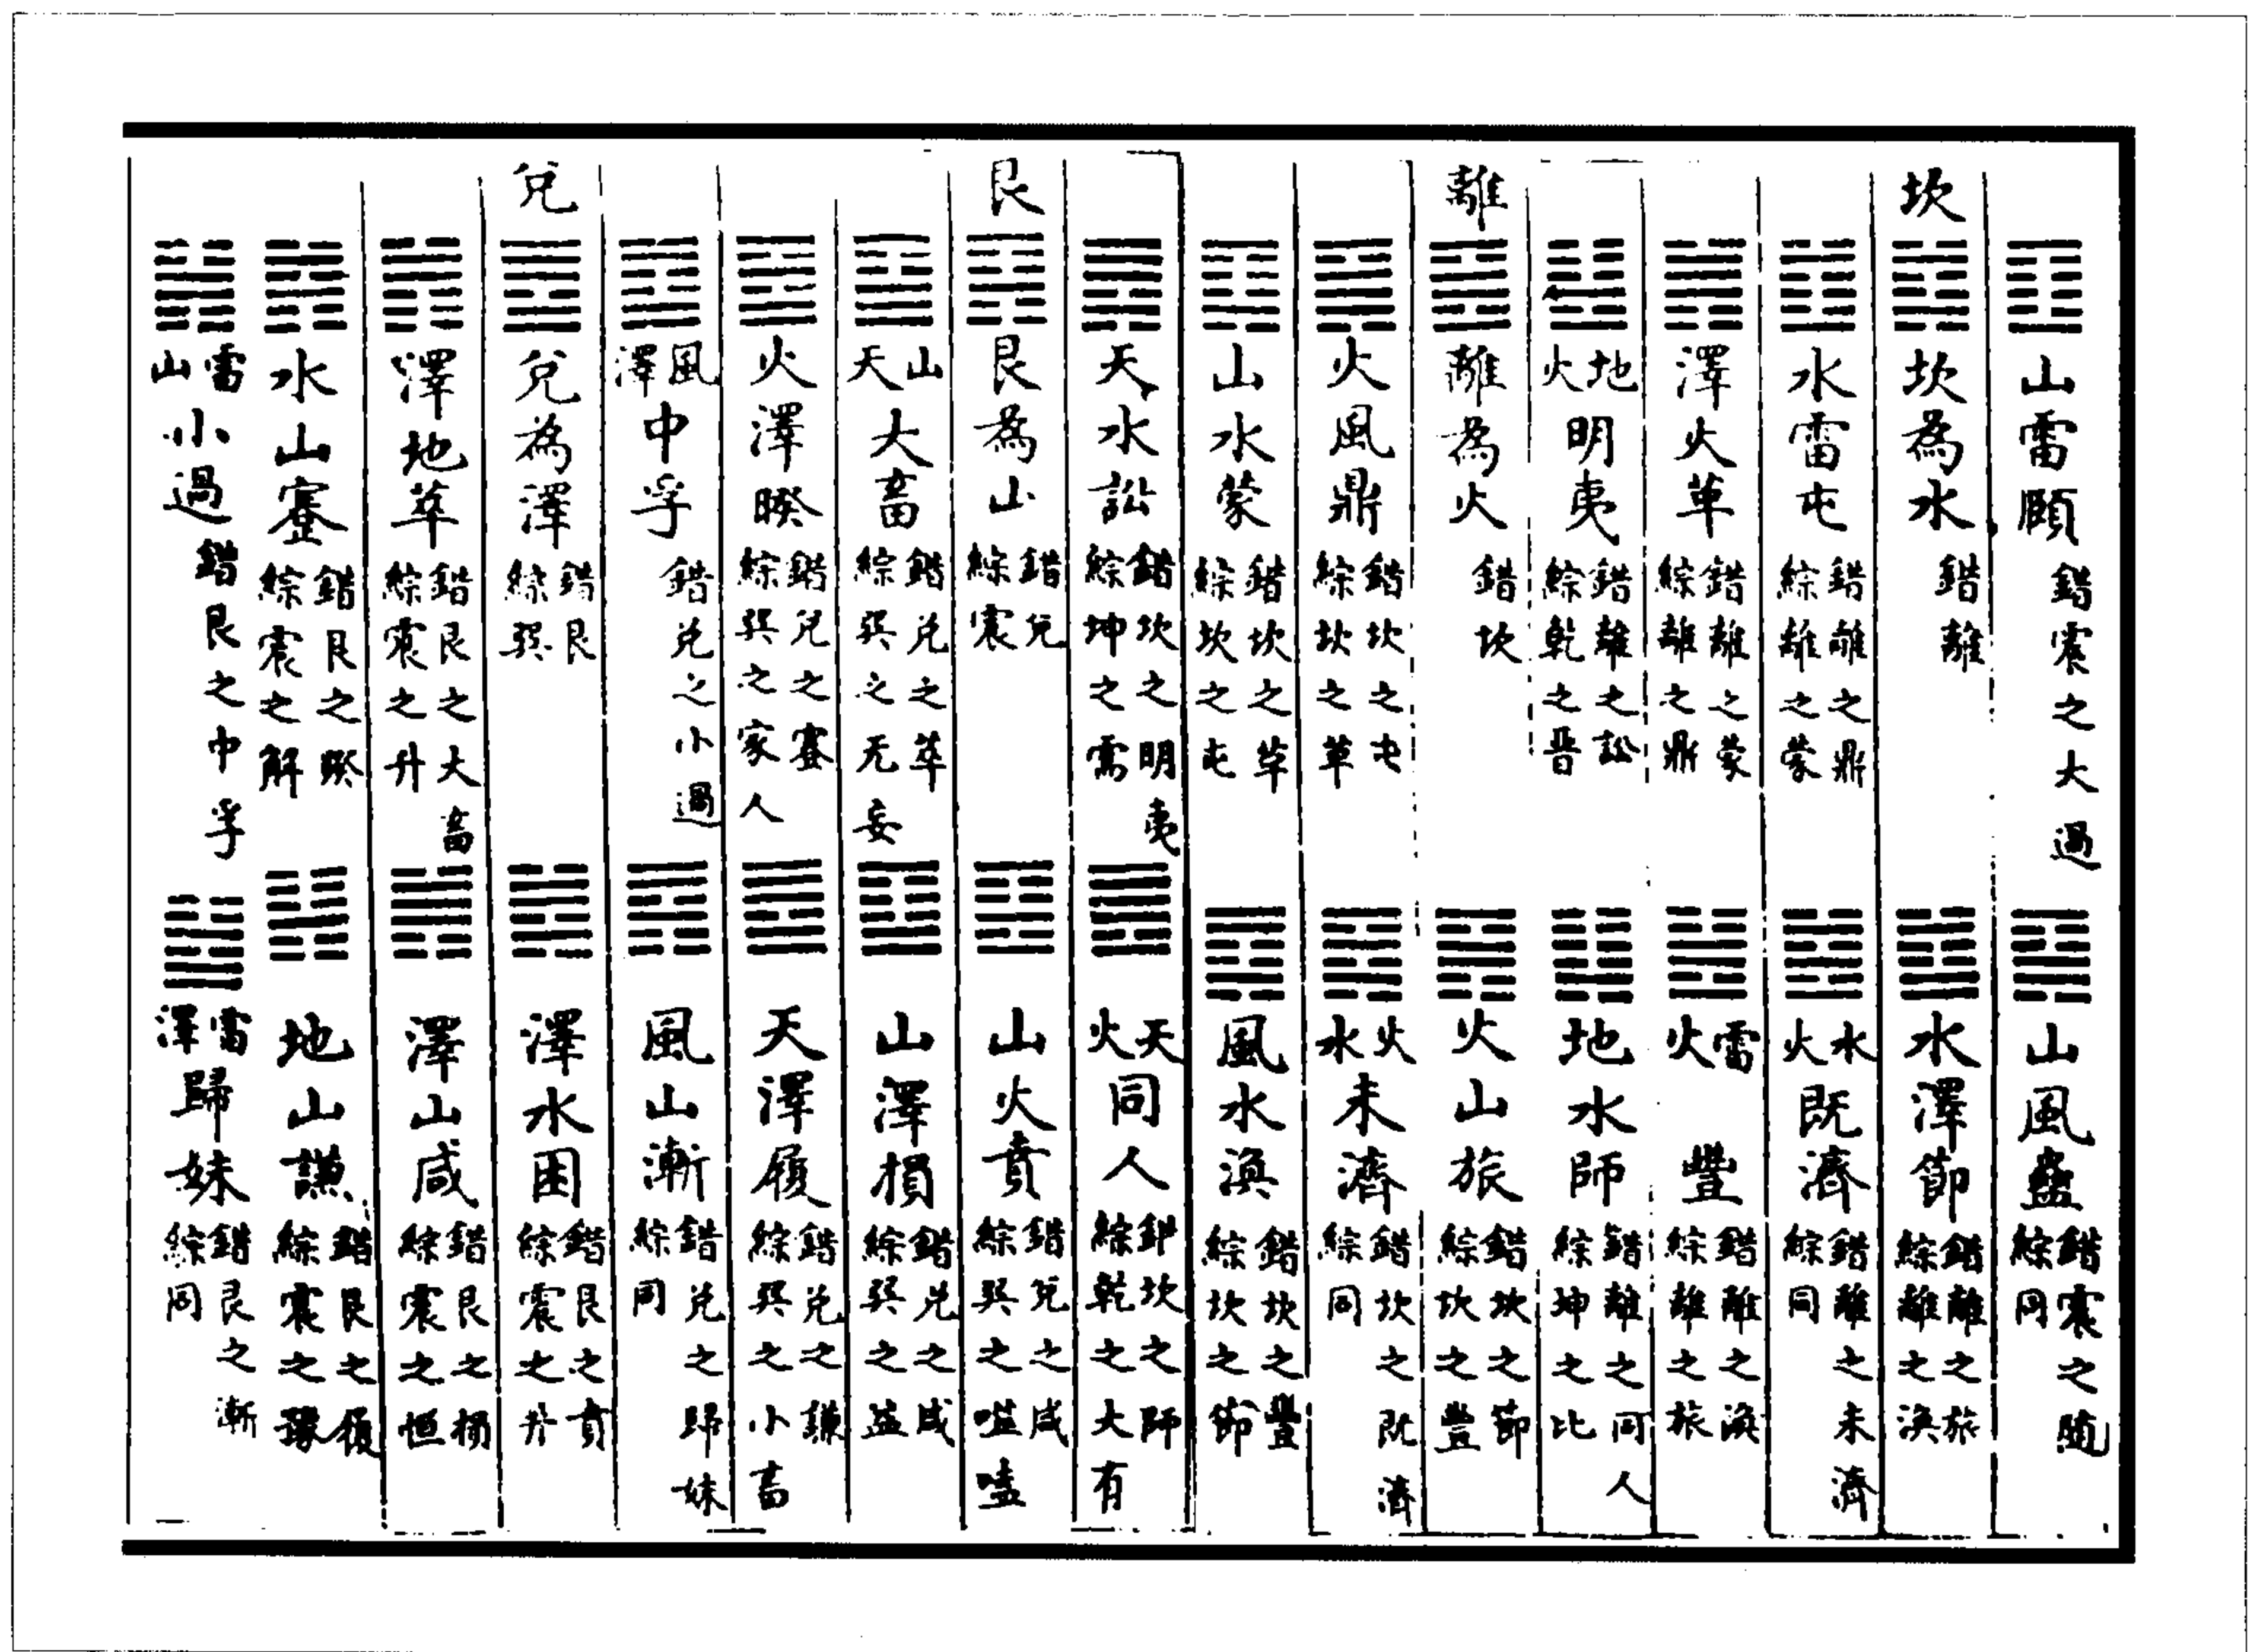 山雷頤 錯震之大過 山風蠱 錯震之隨 綜同
坎 坎為水 錯離 水澤節 錯離之旅 綜離之渙
水雷屯 錯離之鼎 綜離之蒙 水火既濟 錯離之未濟 綜同
澤火革 錯離之蒙 綜離之鼎 雷火豐 錯離之渙 綜離之旅
地火明夷 錯離之訟 綜乾之晉 地水師 錯離之同人 綜坤之比
離 離為火 錯坎 火山旅 錯坎之節 綜坎之豐
火風鼎 錯坎之屯 綜坎之革 火水未濟 錯坎之既濟 綜同
山水蒙 錯坎之革 綜坎之屯 風水渙 錯坎之豐 綜坎之節
天水訟 錯坎之明夷 綜坤之需 天火同人 錯坎之師 綜乾之大有
艮 艮為山 錯兌 綜震 山火賁 錯兌之 綜巽之噬嗑
山天大畜 錯兌之萃 綜巽之无妄 山澤損 錯兌之咸 綜巽之益
火澤睽 錯兌之蹇 綜巽之家人 天澤履 錯兌之謙 綜巽之小畜
風澤中孚 錯兌之小過 風山漸 錯兌之歸妹 綜同
兌 兌為澤 錯艮 綜巽 澤水困 錯艮之賁 綜震之升
澤地萃 錯艮之大畜 綜震之升 澤山咸 錯艮之損 綜震之恒
水山蹇 錯艮之睽 綜震之解 地山謙 錯艮之履 綜震之豫
雷山小過 錯艮之中孚 雷澤歸妹 錯艮之漸 綜同